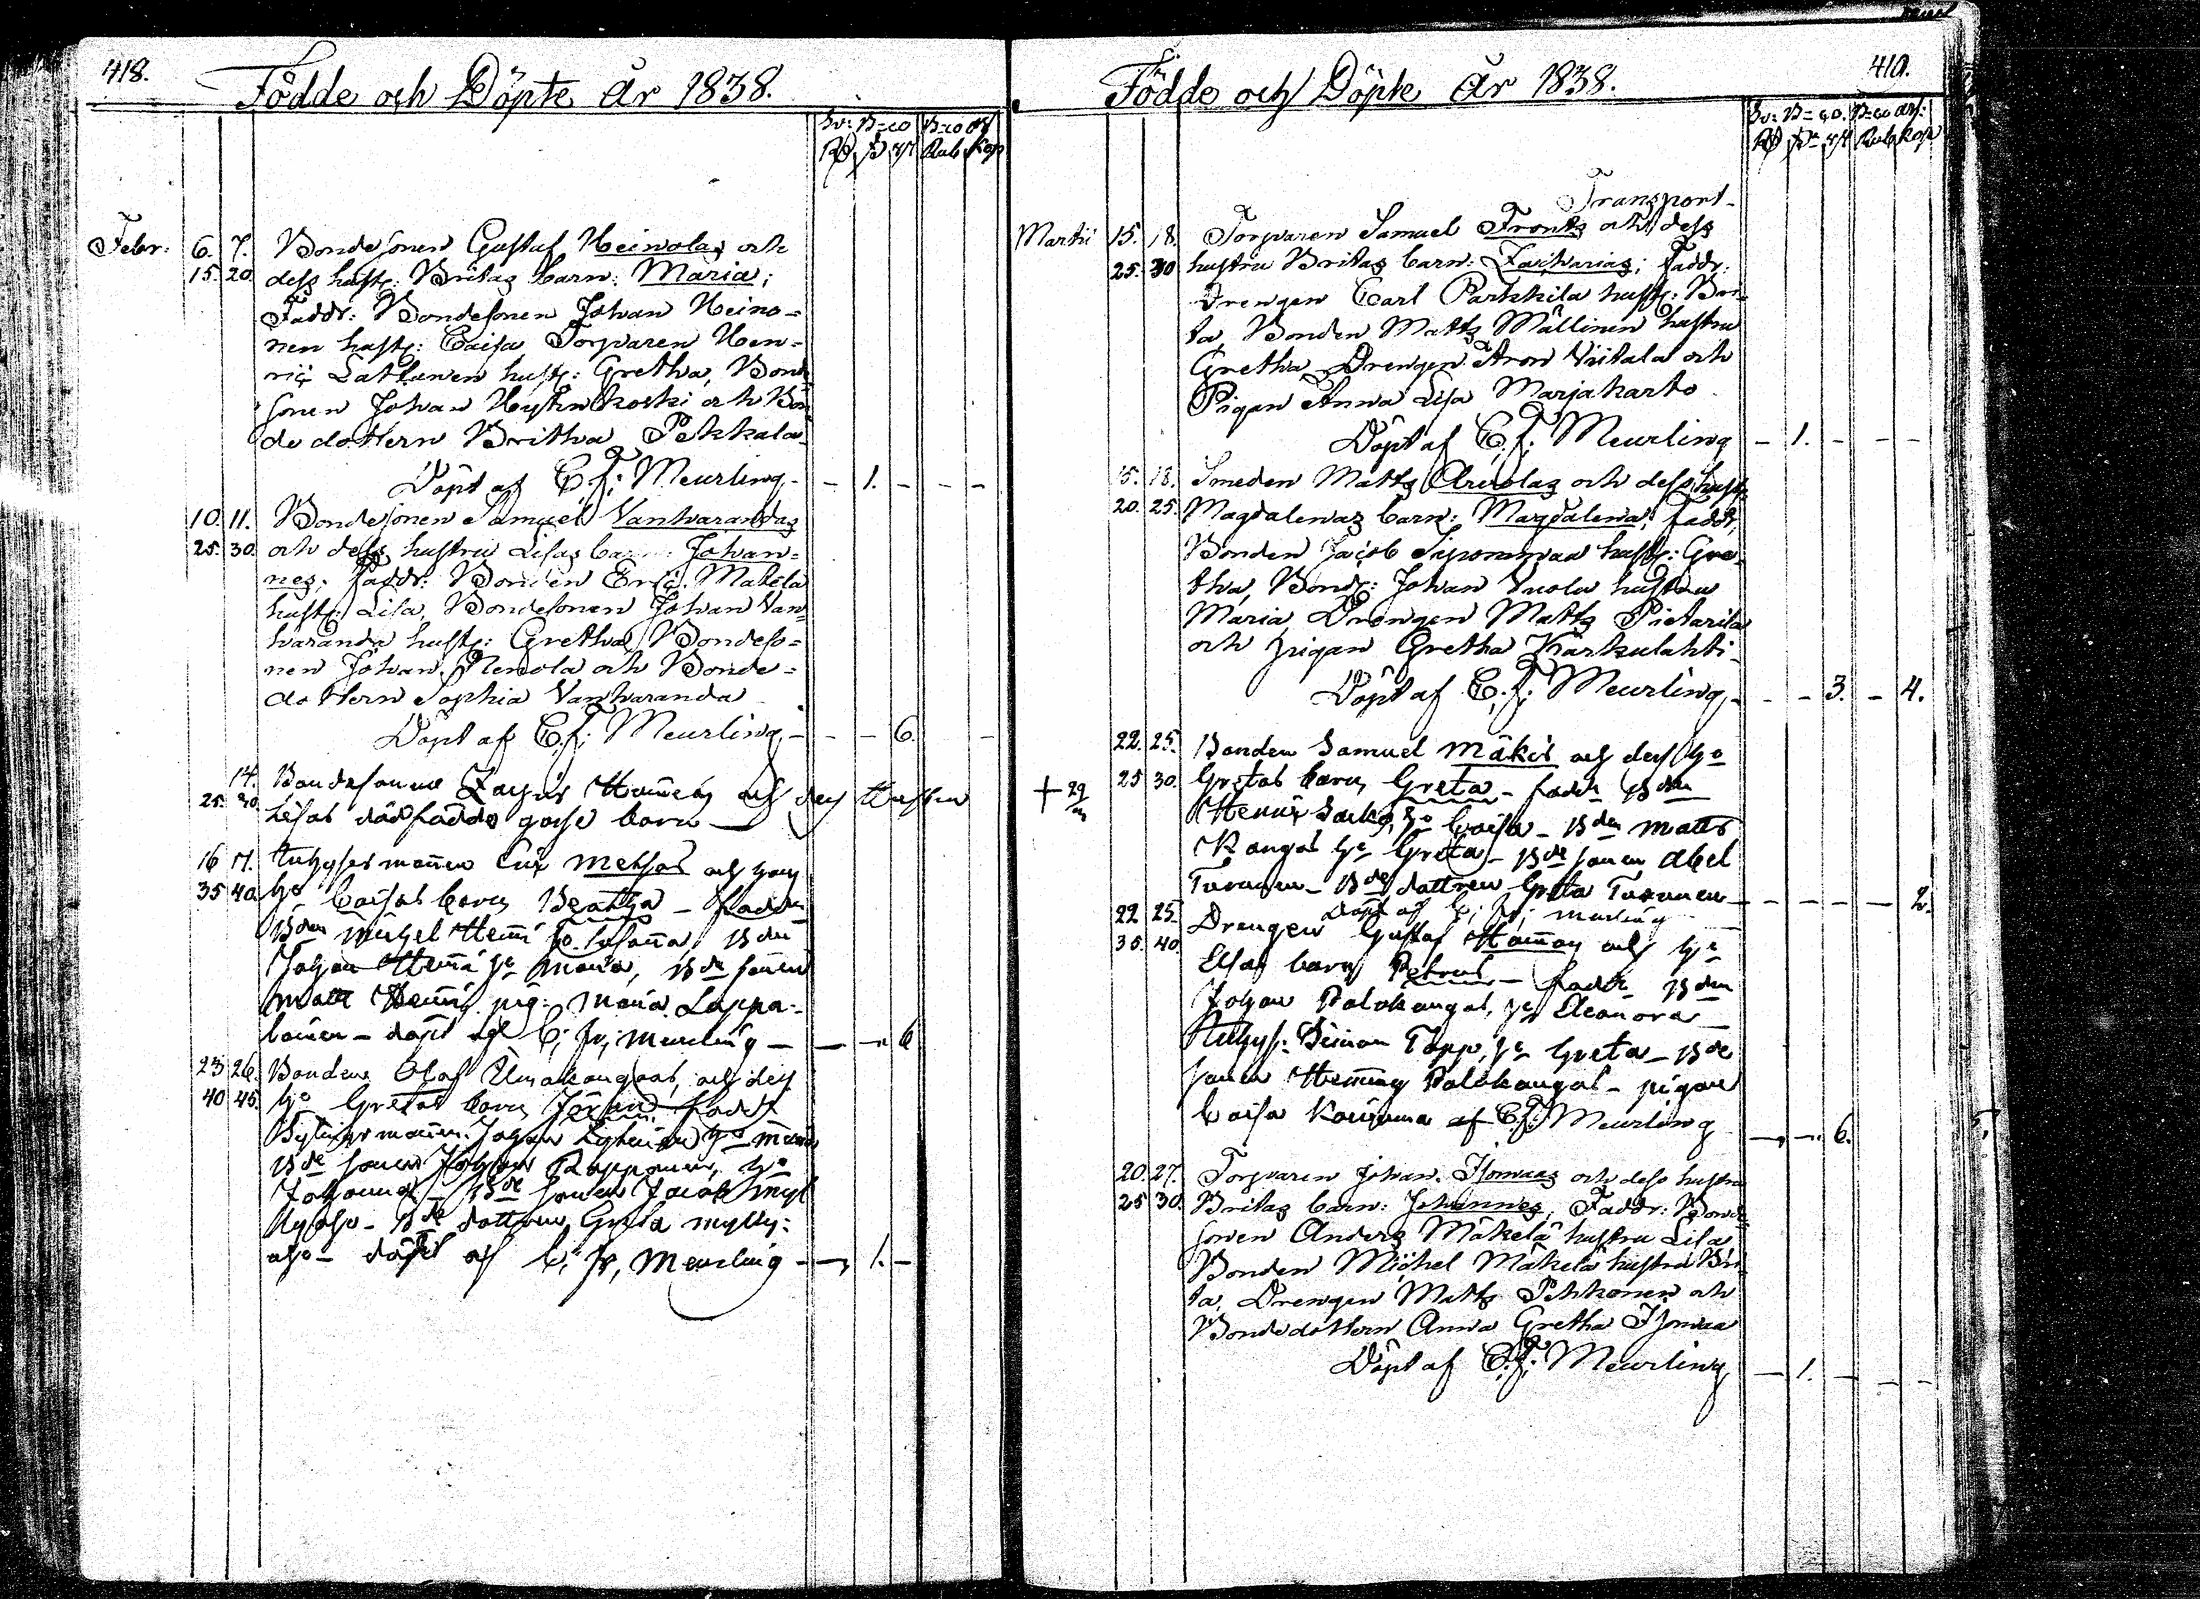 418.
Födde och Döpte År 1838.
Sv: B=co B=co Ass
Rd sk rst Rub Kop
Febr: 6. 7. Bondesonen Gustaf Heinolas och
15. 20. dess hust: Britas barn: Maria;
Faddr: Bondesonen Johan Heino-
nen hust: Caisa Torparen Hen-
ric Lattunen hust: Gretha, Bonde
sonen Johan Koski och Bon
de dottern Britha Pekkala
Döpt af C. F: Meurling - - 1. - - -
10. 11. Bondesonen Samuel Vanharandas
25. 30. och dess hustru Lisas barn Johan-
nes; Faddr: Bonden Eric Mäkelä
hust: Lisa, Bondesonen Johan Van
haranda hust: Gretha, Bondeso-
nen Johan och Bonde-
dottern Sophia Vanharanda
Döpt af C. F: Meurling - - - 6. -
14. Bondesonen och dess Hustru
25. 30. Lisas dödfödde gosse barn
16 17. Nybyggesmannen Eric Mehsas och hans
35 40. Ho Caisas barn Beatha - Faddr
Bden Michel Henni Ho Susanna, Bden
Johan Henni Ho Maria, Bde sonen
Matts Henni pig: Maria Lappa-
lainen - döpt af C. Fr; Meurling - - - 6
23 26. Bonden Olof och dess
40 45. Ho Gretas barn Faddr
Johan Ho Maria
Bde sonen Johan Rapponen, Ho
Johanna - Bde sonen Jacob Mylly
- Bde dottren Greta Mylly-
aho - döpt af C. Fr, Meurling - - 1. -
419.
Födde och Döpte År 1838.
Sv: B=co. B=co Ass:
Rd sk rst Rub Kop
Transport
Martii 15. 18. Torparen Samuel Fronts och dess
25. 30 hustru Britas barn: Zacharias; Faddr:
Drengen Carl Parkkila hust: Bri-
ta, Bonden Matts Mällinen hustru
Gretha Drengen Aron Viitala och
Pigan Anna Lisa Marjakarto
Döpt af C. F: Meurling - 1. - - -
15. 18. Smeden Matts Arvolas och dess hust:
20. 25. Magdalenas barn: Magdalena; Faddr,
Bonden Jacob hust: Gre-
tha, Bond: Johan Vuola hustru
Maria Drengen Matts Pietarila
och pigan Gretha Karkulahti
Döpt af C. F: Meurling - - - 3. - 4.
22. 25. Bonden Samuel Mäkis och dess Ho
+ 29 25 30. Gretas barn Greta - Faddr Bden
Henric Ho Caisa - Bden Matts
Kangas Ho Greta - Bde sonen Abel
Turunen - Bde dottren Greta Turunen - - - - - 2.
döpt af C. Fr; Meurling
22 25. Drengen Gustaf och Ho
35. 40. Elsas barn Petrus - Faddr Bden
Johan Palokangas, Ho Eleonora
Nybygg: Simon Tapp, Ho Greta - Bde
sonen Henning Palokangas - pigan
Caisa af C. F: Meurling - - . 6. 5.
20. 27. Torparen Johan Isomaas och dess hustru
25 30. Britas barn: Johannes, Faddr: Bonde
sonen Anders Mäkelä hustru Lisa
Bonden Michel Mäkelä hustru Bri-
ta, Drengen Matts Pekkonen och
Bondedottern Anna Gretha Isomaa
Döpt af C. F: Meurling - 1. - - -